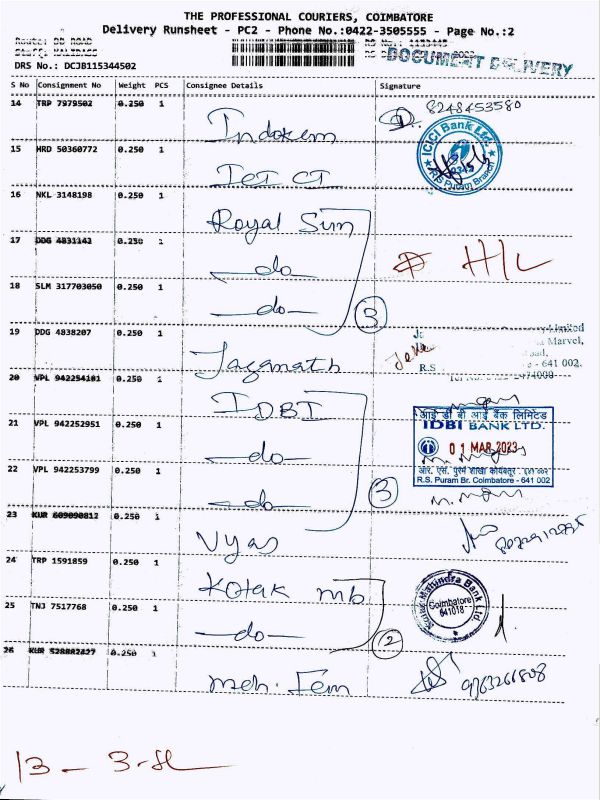 THE PROFESSIONAL COURIERS, COIMBATORE
Delivery Runsheet - PC2 - Phone No.:0422-3505555 - Page No.:2
Route: DD ROAD
DOCUMENT DELIVERY
DRS No.: DCJB115344502
S No Consignment No Weight PCS Consignee Details Signature
14 TRP 7979502 0.250 1 Indokem 8248453580
ICICI Bank Ltd.
R.S Puram Branch
15 HRD 50360772 0.250 1 ICICI
16 NKL 3148198 0.250 1 Royal Sun
17 DDG 4831143 0.250 1 —do— H/L
18 SLM 317703050 0.250 1 —do— 3
19 DDG 4838207 0.250 1 Jaganath
Limited
Marvel,
Road,
R.S - 641 002.
20 VPL 942254101 0.250 1 IDBI
आई डी बी आई बैंक लिमिटेड
IDBI BANK LTD.
21 VPL 942252951 0.250 1 —do— 01 MAR 2023
R.S. Puram Br. Coimbatore - 641 002
22 VPL 942253799 0.250 1 —do— 3
23 KUR 609090812 0.250 1 Vyas
24 TRP 1591859 0.250 1 Kotak mb
Kotak Mahindra Bank Ltd.
Coimbatore
641018
25 TNJ 7517768 0.250 1 —do— 2
26 KUR 528882427 0.250 1 meh. Fem 9763266808
13 - 3-SL